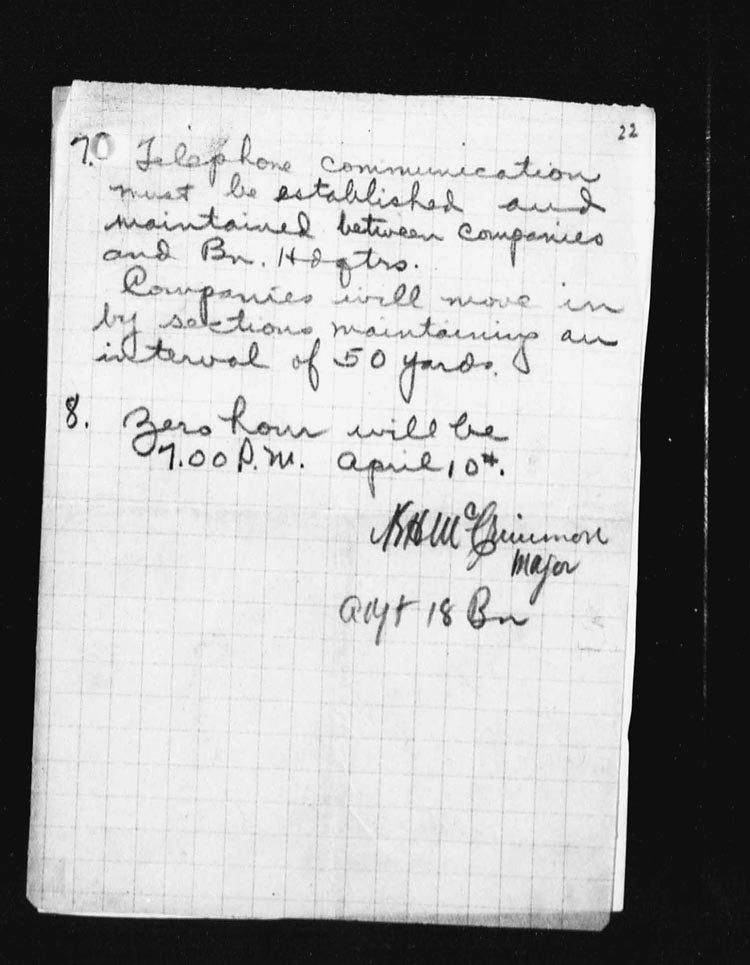 22
7.0 Telephone communication
must be established and
maintained between companies
and Bn. Hdqtrs.
Companies will move in
by sections maintaining an
interval of 50 yards.
8. Zero hour will be
7.00 P.M. April 10th.
McCrimmon
Major
Adjt 18 Bn